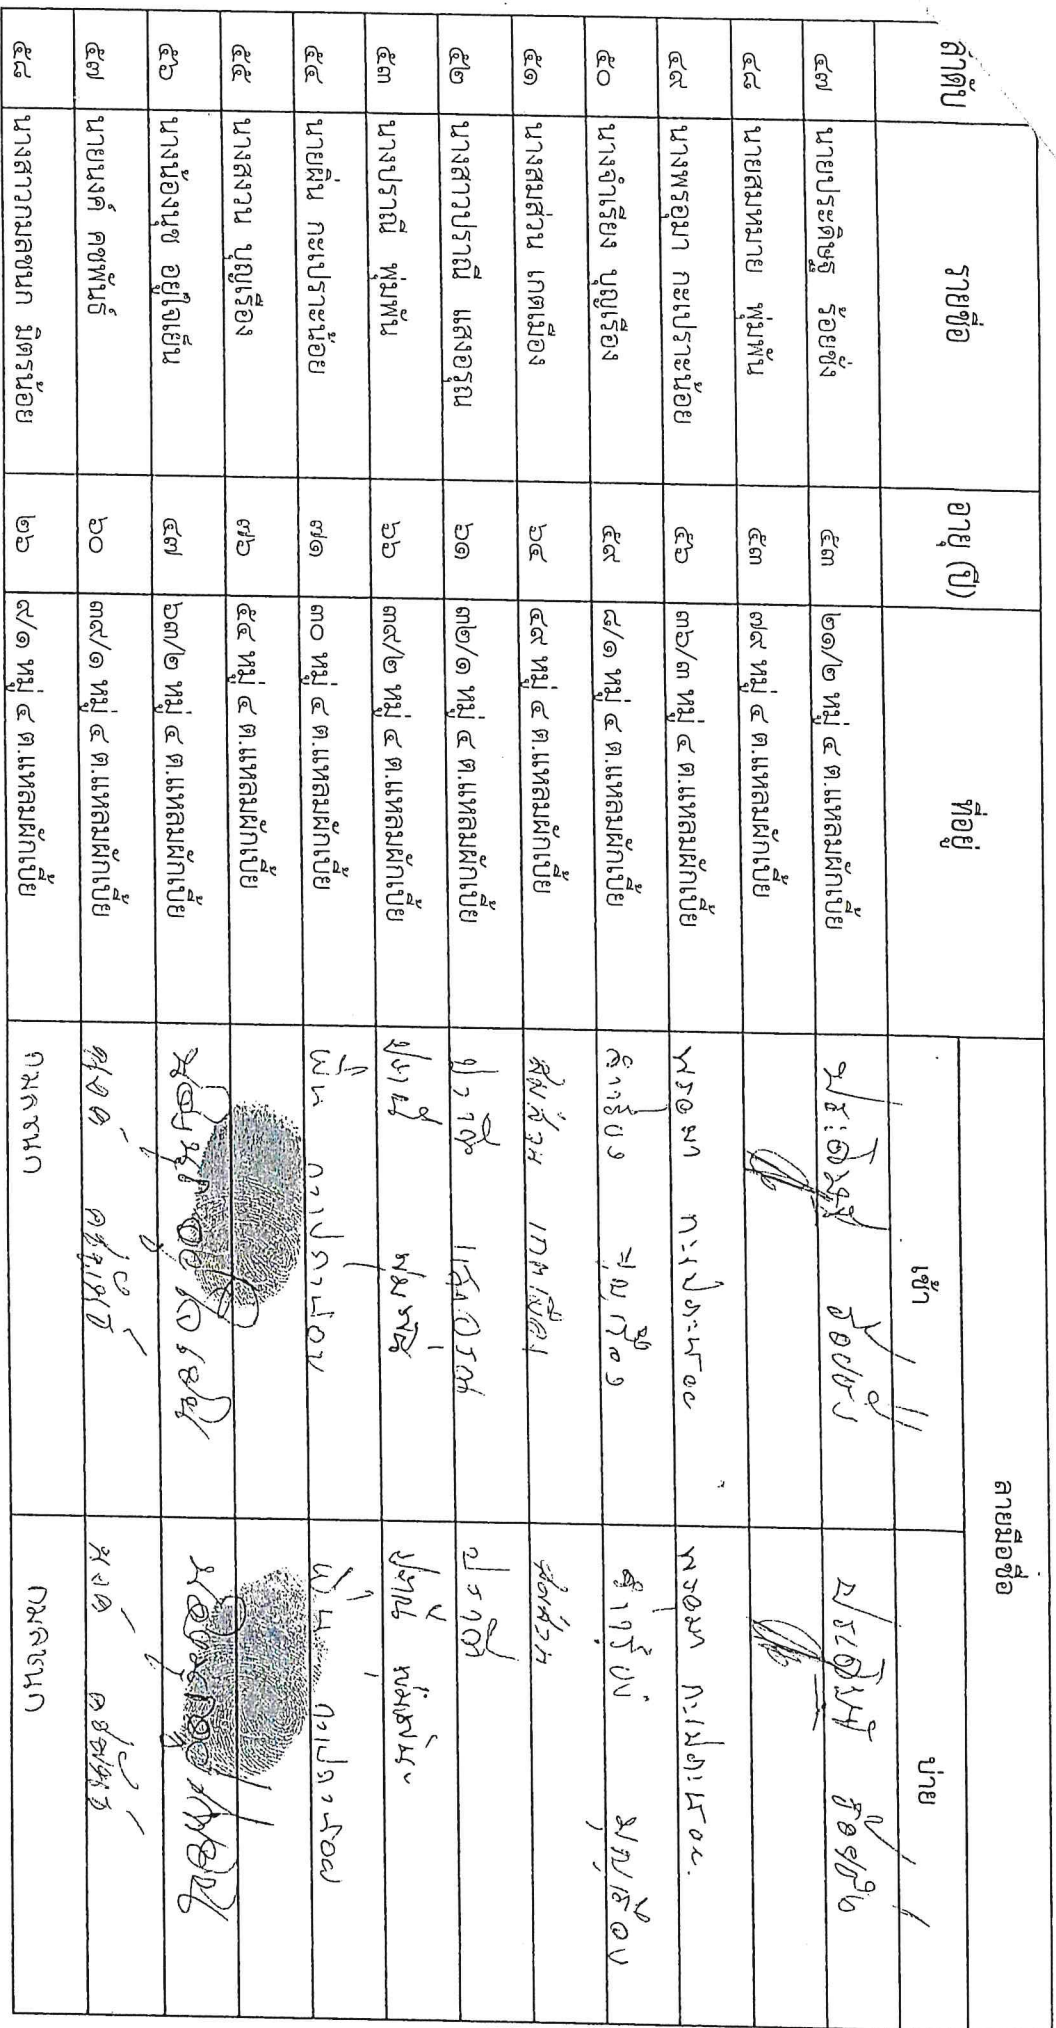 ลำดับ รายชื่อ อายุ (ปี) ที่อยู่ ลายมือชื่อ
เช้า บ่าย
๔๗ นายประดิษฐ ร้อยชั่ง ๕๓ ๒๑/๒ หมู่ ๔ ต.แหลมผักเบี้ย ประดิษฐ ร้อยชั่ง ประดิษฐ์ ร้อยชั่ง
๔๘ นายสมหมาย พุ่มพัน ๕๓ ๗๙ หมู่ ๔ ต.แหลมผักเบี้ย
๔๙ นางพรอุมา กะเปราะน้อย ๕๖ ๓๖/๓ หมู่ ๔ ต.แหลมผักเบี้ย
๕๐ นางจำเรียง บุญเรือง ๕๙ ๘/๑ หมู่ ๔ ต.แหลมผักเบี้ย จำเรียง บุญเรือง จำเรียง บุญเรือง
๕๑ นางสมส่วน เกตเมือง ๖๔ ๔๙ หมู่ ๔ ต.แหลมผักเบี้ย สมส่วน เกตเมือง สมส่วน
๕๒ นางสาวปราณี แสงอรุณ ๖๑ ๓๒/๑ หมู่ ๔ ต.แหลมผักเบี้ย ปราณี แสงอรุณ ปราณี
๕๓ นางปราณี พุ่มพัน ๖๖ ๓๙/๒ หมู่ ๔ ต.แหลมผักเบี้ย ปราณี พุ่มพัน ปราณี พุ่มพัน
๕๔ นายผิน กะเปราะน้อย ๗๑ ๓๐ หมู่ ๔ ต.แหลมผักเบี้ย
๕๕ นางสงวน บุญเรือง ๗๖ ๕๔ หมู่ ๔ ต.แหลมผักเบี้ย
๕๖ นางน้องนุช อยู่ใจเย็น ๔๗ ๖๓/๒ หมู่ ๔ ต.แหลมผักเบี้ย
๕๗ นายนงค์ คชพันธ์ ๖๐ ๓๙/๑ หมู่ ๔ ต.แหลมผักเบี้ย
๕๘ นางสาวกมลชนก มิตรน้อย ๒๖ ๙/๑ หมู่ ๔ ต.แหลมผักเบี้ย กมลชนก กมลชนก